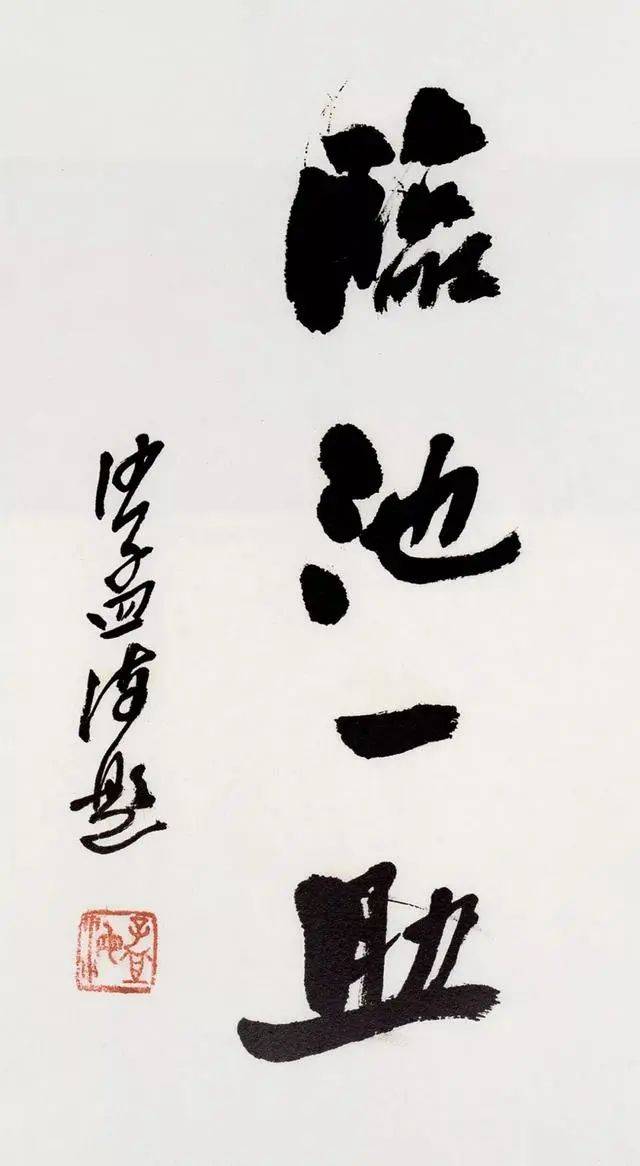 臨池一助
沙孟海題
孟海